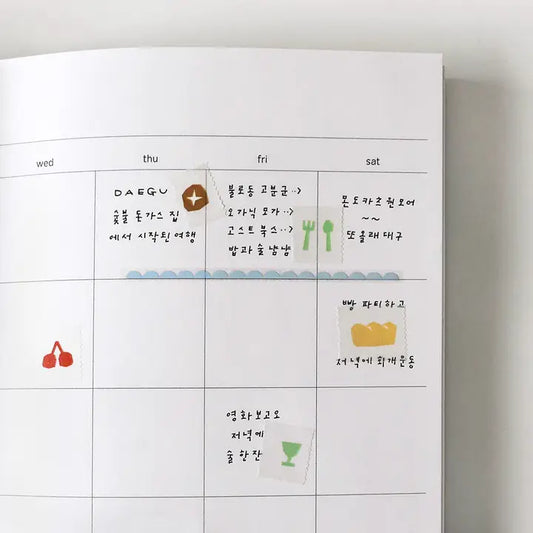 wed
thu
fri
sat
DAEGU
숯불 돈가스 집
에서 시작된 여행
불로동 고분군 ··>
오가닉 모가 ··>
고스트 북스 ··>
밥과 술 냠냠
몬도카츠 원모어
~~
또 올래 대구
빵 파티하고
저녁에 회개운동
영화보고오
저녁에
술 한잔